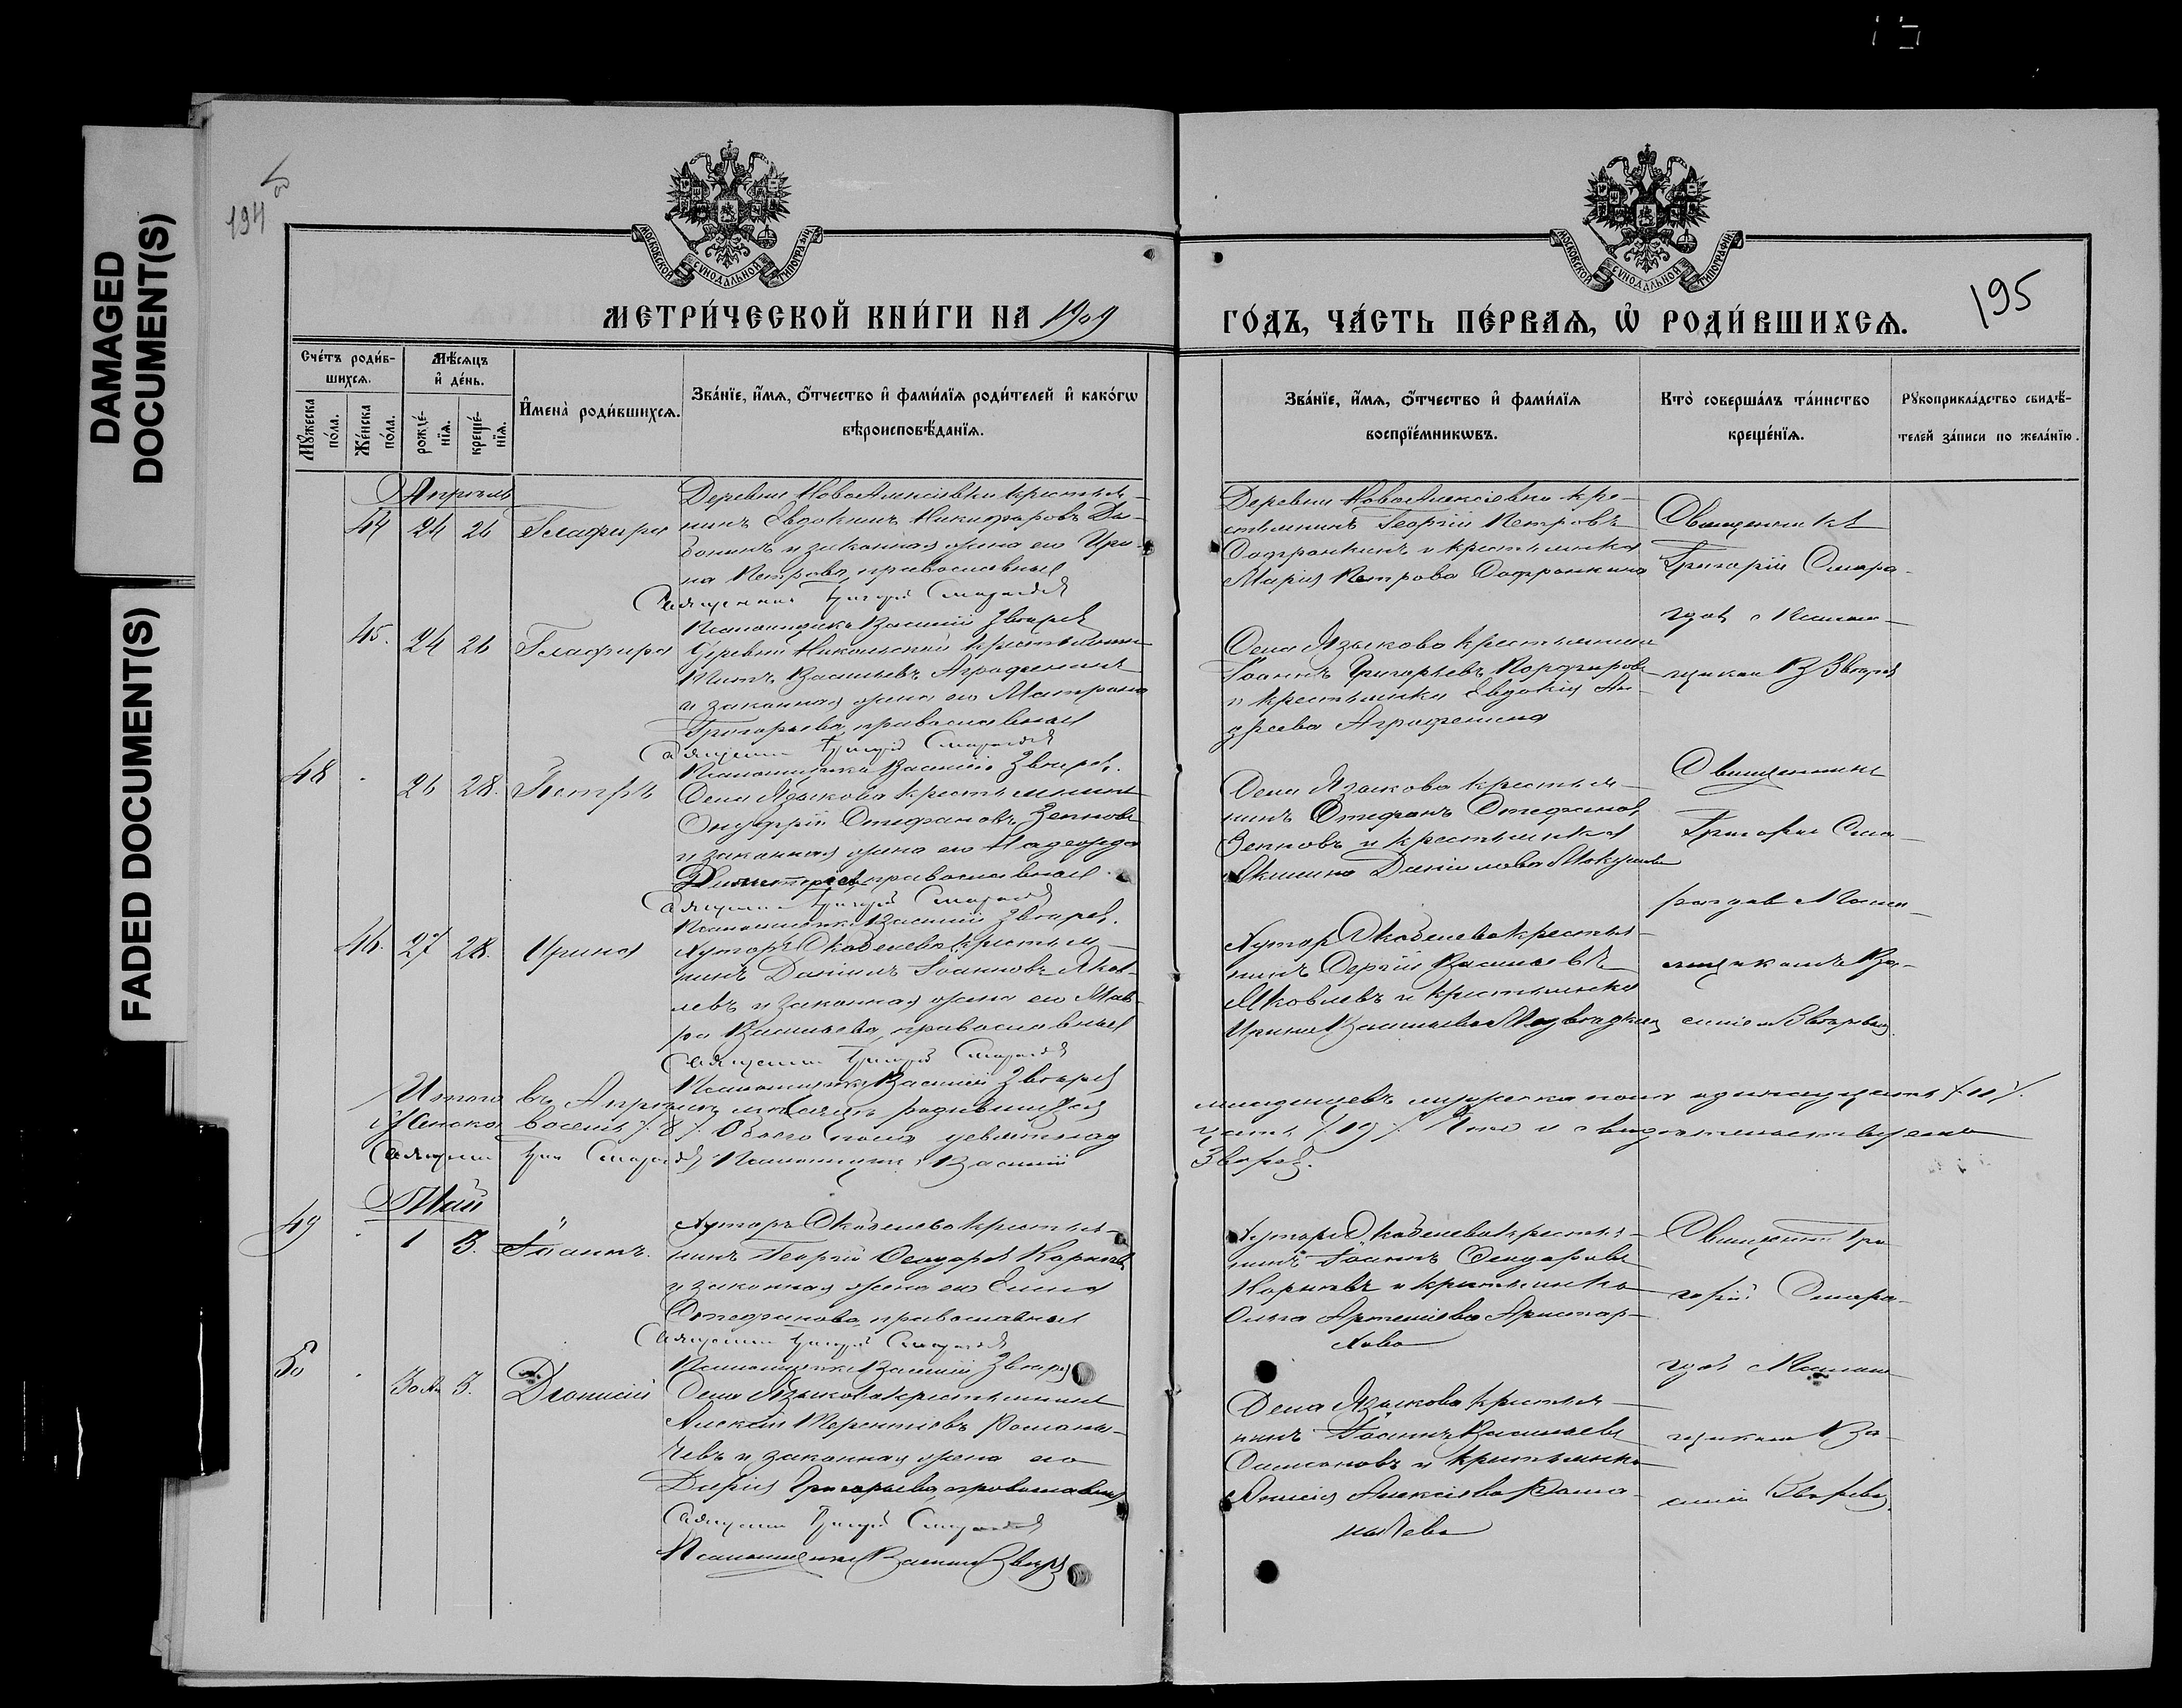 DAMAGED
DOCUMENT(S)
FADED DOCUMENT(S)
194
195
МОСКОВСКОЙ СѴНОДАЛЬНОЙ ТИПОГРАФІИ
МОСКОВСКОЙ СѴНОДАЛЬНОЙ ТИПОГРАФІИ
МЕТРИ́ЧЕСКОЙ КНИ́ГИ НА 1909
ГО́ДЪ, ЧА́СТЬ ПЕ́РВАѦ, Ѽ РОДИ́ВШИХСѦ.
Сче́тъ роди́в-
шихсѧ.
Мꙋ́жеска
по́ла.
Же́нска
по́ла.
Мѣ́сѧцъ
и҆ де́нь.
рожде́-
нїѧ.
креще́-
нїѧ.
И҆мена̀ роди́вшихсѧ.
Зва́нїе, и҆́мѧ, ѻ҆́тчество и҆ фами́лїѧ роди́телей и҆ како́гѡ
вѣроисповѣ́данїѧ.
Зва́нїе, и҆́мѧ, ѻ҆́тчество и҆ фами́лїѧ
воспрїе́мникѡвъ.
Кто̀ соверша́лъ та́инство
креще́нїѧ.
Рꙋкоприкла́дство свидѣ́-
телей за́писи по жела́нїю.
Апрѣль
44 24 26 Глафира
Деревни НовоАлексіевки крестья-
нинъ Евдокимъ Никифоровъ
и законная жена его Ири-
на Петрова, православные
Священникъ Григорій Смарагдовъ
Псаломщикъ Василій Звѣревъ
Деревни НовоАлексіевки кре-
стьянинъ Георгій Петровъ
Софронкинъ и крестьянка
Марія Петрова Софронкина
Священникъ
Григорій Смара-
гдовъ с Псалом-
щикомъ В Звѣрев
45. 24 26 Глафира
Деревни Никольской крестьянинъ
Титъ Васильевъ Аграфенинъ
и законная жена его Матрона
Григорьева, православные
Священникъ Григорій Смарагдовъ
Псаломщикъ Василій Звѣревъ.
Села Языкова крестьянинъ
Іоаннъ Григорьевъ Порфировъ
и крестьянка Евдокія Ан-
дреева Аграфенина
48 26 28. Петръ
Села Языкова крестьянинъ
Онуфрій Стефановъ Зенковъ
и законная жена его Надежда
Димитріева, православные
Священникъ Григорій Смарагдовъ
Псаломщикъ Василій Звѣревъ.
Села Языкова крестья-
нинъ Стефанъ Стефановъ
Зенковъ и крестьянка
Акилина Даніилова
Священникъ
Григорій Сма-
рагдовъ Псало-
мщикомъ Ва-
силіем Звѣревым.
46. 27 28. Ирина
Хуторъ Скобелева крестья-
нинъ Даніилъ Іоанновъ Яков-
левъ и законная жена его Мав-
ра Васильева, православные
Священникъ Григорій Смарагдовъ
Псаломщикъ Василій Звѣревъ
Хутор Скобелева крестья-
нинъ Сергій Васильевъ
Яковлевъ и крестьянка
Ирина Васильева
Итого въ Апрѣлѣ мѣсяцѣ родившихся младенцевъ мужеска пола одинадцать /.11/.
Женска восемь /.8/. Обоего пола девятнад цать /.19/. Что и свидѣтельствуемъ
Священникъ Григ Смарагдовъ Псаломщикъ Василій Звѣревъ.
Май
49 1 3. Іоаннъ.
Хуторъ Скобелева крестья-
нинъ Георгій Ѳеодоровъ Корневъ
и законная жена его Елена
Стефанова, православные
Священникъ Григорій Смарагдовъ
Псаломщикъ Василій Звѣревъ
Хуторъ Скобелева крестья-
нинъ Іоаннъ Ѳеодоровъ
Корневъ и крестьянка
Ольга Артеміева Аристар-
хова
Священникъ Гри
горій Смара-
гдовъ Псалом-
щикомъ Ва-
силій Звѣревъ.
50 30 Ап 3. Діонисій
Села Языкова крестьянинъ
Алексій Терентіевъ Романы-
чевъ и законная жена его
Дарія Григорьева, православные
Священникъ Григорій Смарагдовъ
Псаломщикъ Василій Звѣревъ
Села Языкова крестья-
нинъ Іоаннъ Васильевъ
и крестьянка
Анисія Алексіева Рома-
нычева